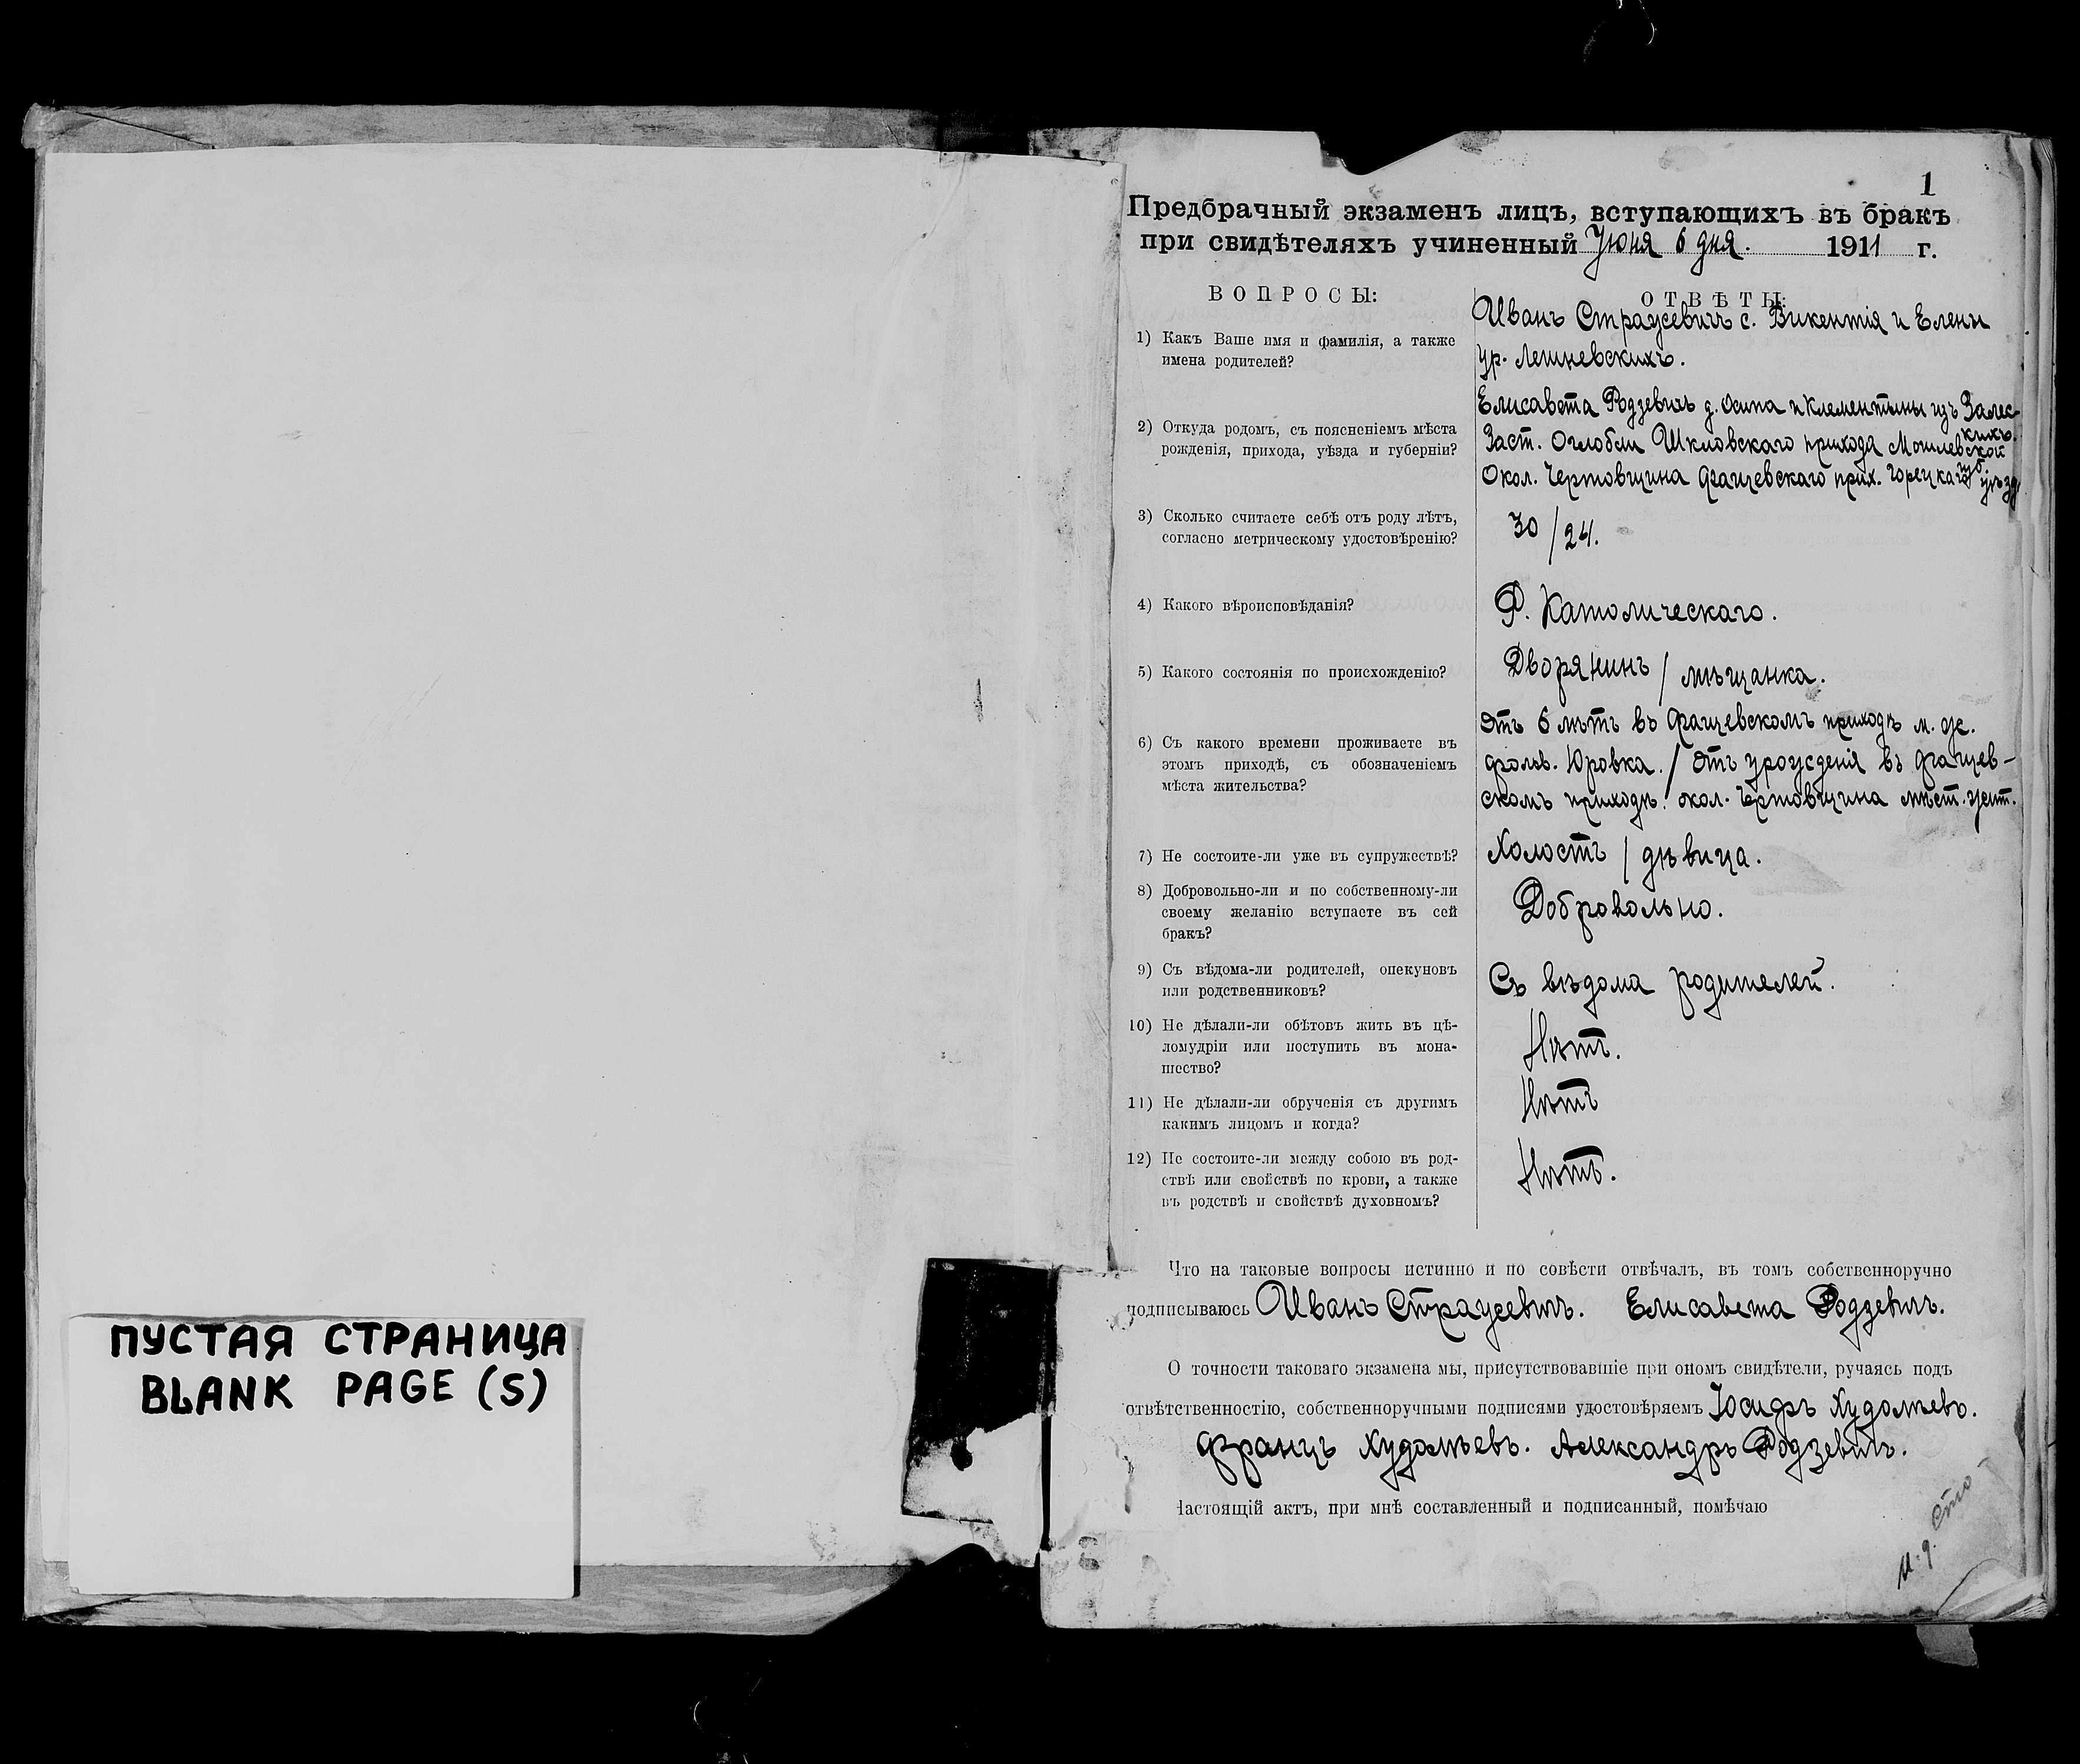 ПУСТАЯ СТРАНИЦА
BLANK PAGE (S)
1
Предбрачный экзаменъ лицъ, вступающихъ въ бракъ
при свидѣтеляхъ учиненный Іюня 6 дня. 1911 г.
ВОПРОСЫ:
ОТВѢТЫ:
1) Какъ Ваше имя и фамилія, а также
имена родителей?
Иванъ Страусевичъ с. Викентія и Елены
ур. Лешневскихъ.
Елисавета Родзевичъ д. Осипа и Клементины изъ Залес-
кихъ.
2) Откуда родомъ, съ поясненіемъ мѣста
рожденія, прихода, уѣзда и губерніи?
Заст. Оглобли Шкловскаго прихода Могилевской
губ.
Окол. Чертовщина Фащевскаго прих. Горецкаго уѣзд.
3) Сколько считаете себѣ отъ роду лѣтъ,
согласно метрическому удостовѣренію?
30 / 24.
4) Какого вѣроисповѣданія?
Р. Католическаго.
5) Какого состоянія по происхожденію?
Дворянинъ / мѣщанка.
6) Съ какого времени проживаете въ
этомъ приходѣ, съ обозначеніемъ
мѣста жительства?
Отъ 6 лѣтъ въ Фащевскомъ приходѣ м. ж.
фольв. Юровка. / Отъ урожденія въ Фащев-
скомъ приходѣ. окол. Чертовщина мѣст. жит.
7) Не состоите-ли уже въ супружествѣ?
Холостъ / дѣвица.
8) Добровольно-ли и по собственному-ли
своему желанію вступаете въ сей
бракъ?
Добровольно.
9) Съ вѣдома-ли родителей, опекуновъ
или родственниковъ?
Съ вѣдома родителей.
10) Не дѣлали-ли обѣтовъ жить въ цѣ-
ломудріи или поступить въ мона-
шество?
Нѣтъ.
11) Не дѣлали-ли обрученія съ другимъ
какимъ лицомъ и когда?
Нѣтъ
12) Не состоите-ли между собою въ род-
ствѣ или свойствѣ по крови, а также
въ родствѣ и свойствѣ духовномъ?
Нѣтъ.
Что на таковые вопросы истинно и по совѣсти отвѣчалъ, въ томъ собственноручно
подписываюсь Иванъ Страусевичъ. Елисавета Родзевичъ.
О точности таковаго экзамена мы, присутствовавшіе при ономъ свидѣтели, ручаясь подъ
отвѣтственностію, собственноручными подписями удостовѣряемъ Іосифъ Худолѣевъ.
Францъ Худолѣевъ. Александръ Родзевичъ.
Настоящій актъ, при мнѣ составленный и подписанный, помѣчаю